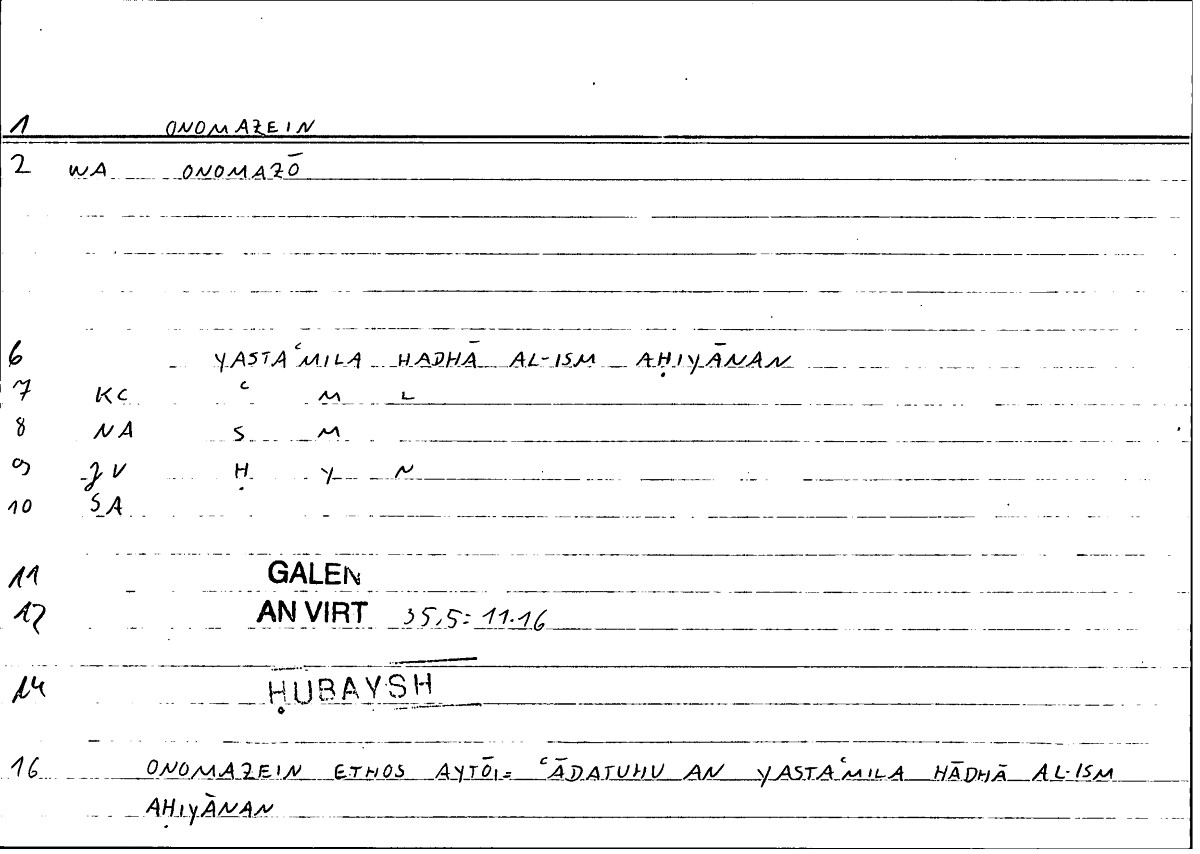 1 ONOMAZEIN
2 WA ONOMAZŌ
6 YASTAʿMILA HADHĀ AL-ISM AḤIYĀNAN
7 KC ʿ M L
8 NA S M
9 ZV Ḥ Y N
10 SA
11 GALEN
12 AN VIRT 35,5: 11.16
14 ḤUBAYSH
16 ONOMAZEIN ETHOS AYTŌI= ʿĀDATUHU AN YASTAʿMILA HĀDHĀ AL-ISM
AḤIYĀNAN